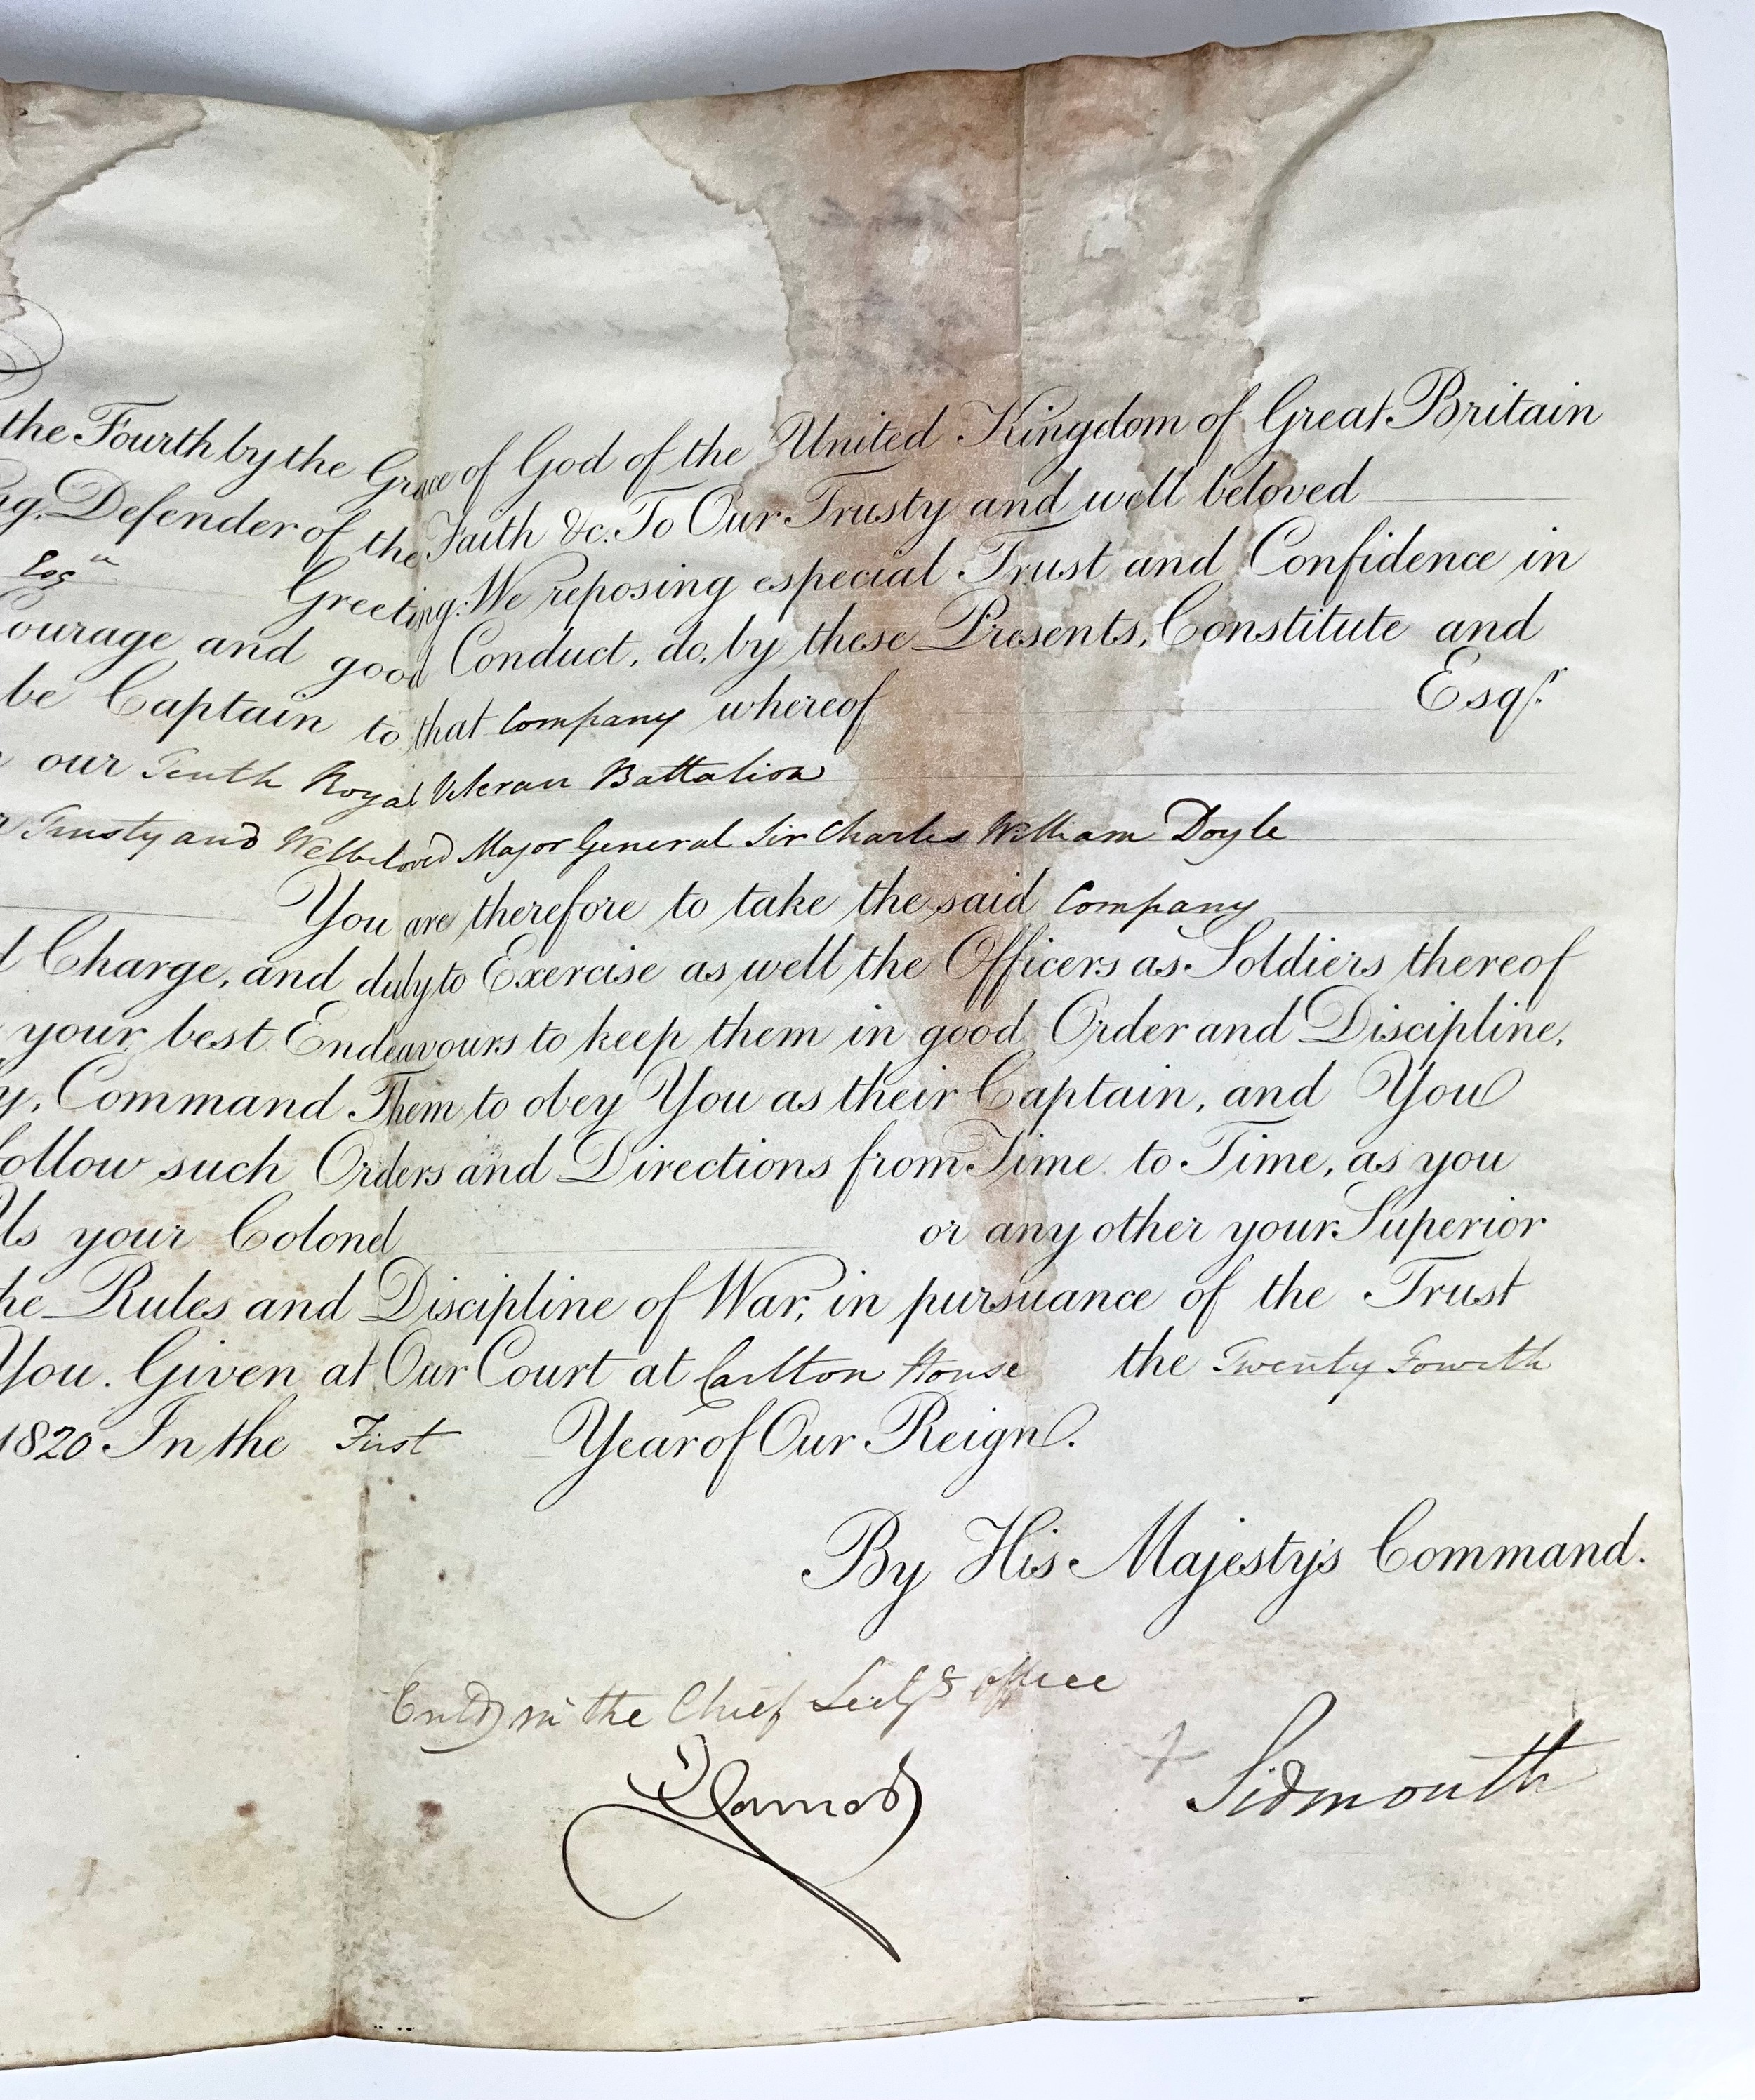 the Fourth by the Grace of God of the United Kingdom of Great Britain
Defender of the Faith &c. To Our Trusty and well beloved
Esqr Greeting: We reposing especial Trust and Confidence in
ourage and good Conduct, do, by these Presents, Constitute and
be Captain to that Company whereof Esqr.
our Tenth Royal Veteran Battalion
Trusty and Welbeloved Major General Sir Charles William Doyle
You are therefore to take the said Company
d Charge, and duly to Exercise as well the Officers as Soldiers thereof
your best Endeavours to keep them in good Order and Discipline,
y, Command Them to obey You as their Captain, and You
ollow such Orders and Directions from Time to Time, as you
Us your Colonel or any other your Superior
he Rules and Discipline of War, in pursuance of the Trust
You. Given at Our Court at Carlton House the Twenty Fourth
1820 In the First Year of Our Reign.
By His Majesty's Command.
Entd in the Chief Secty's Office
Sidmouth